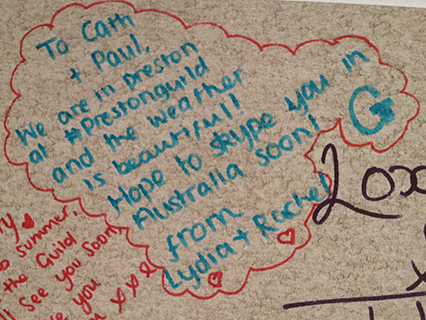 To Cath
+ Paul,
We are in Preston
at #Prestonguild
and the weather
is beautiful!
Hope to skype you in
Australia soon!
from
Lydia + Rachel
G
Lox
summer.
the Guild
see you soon
you
xxx